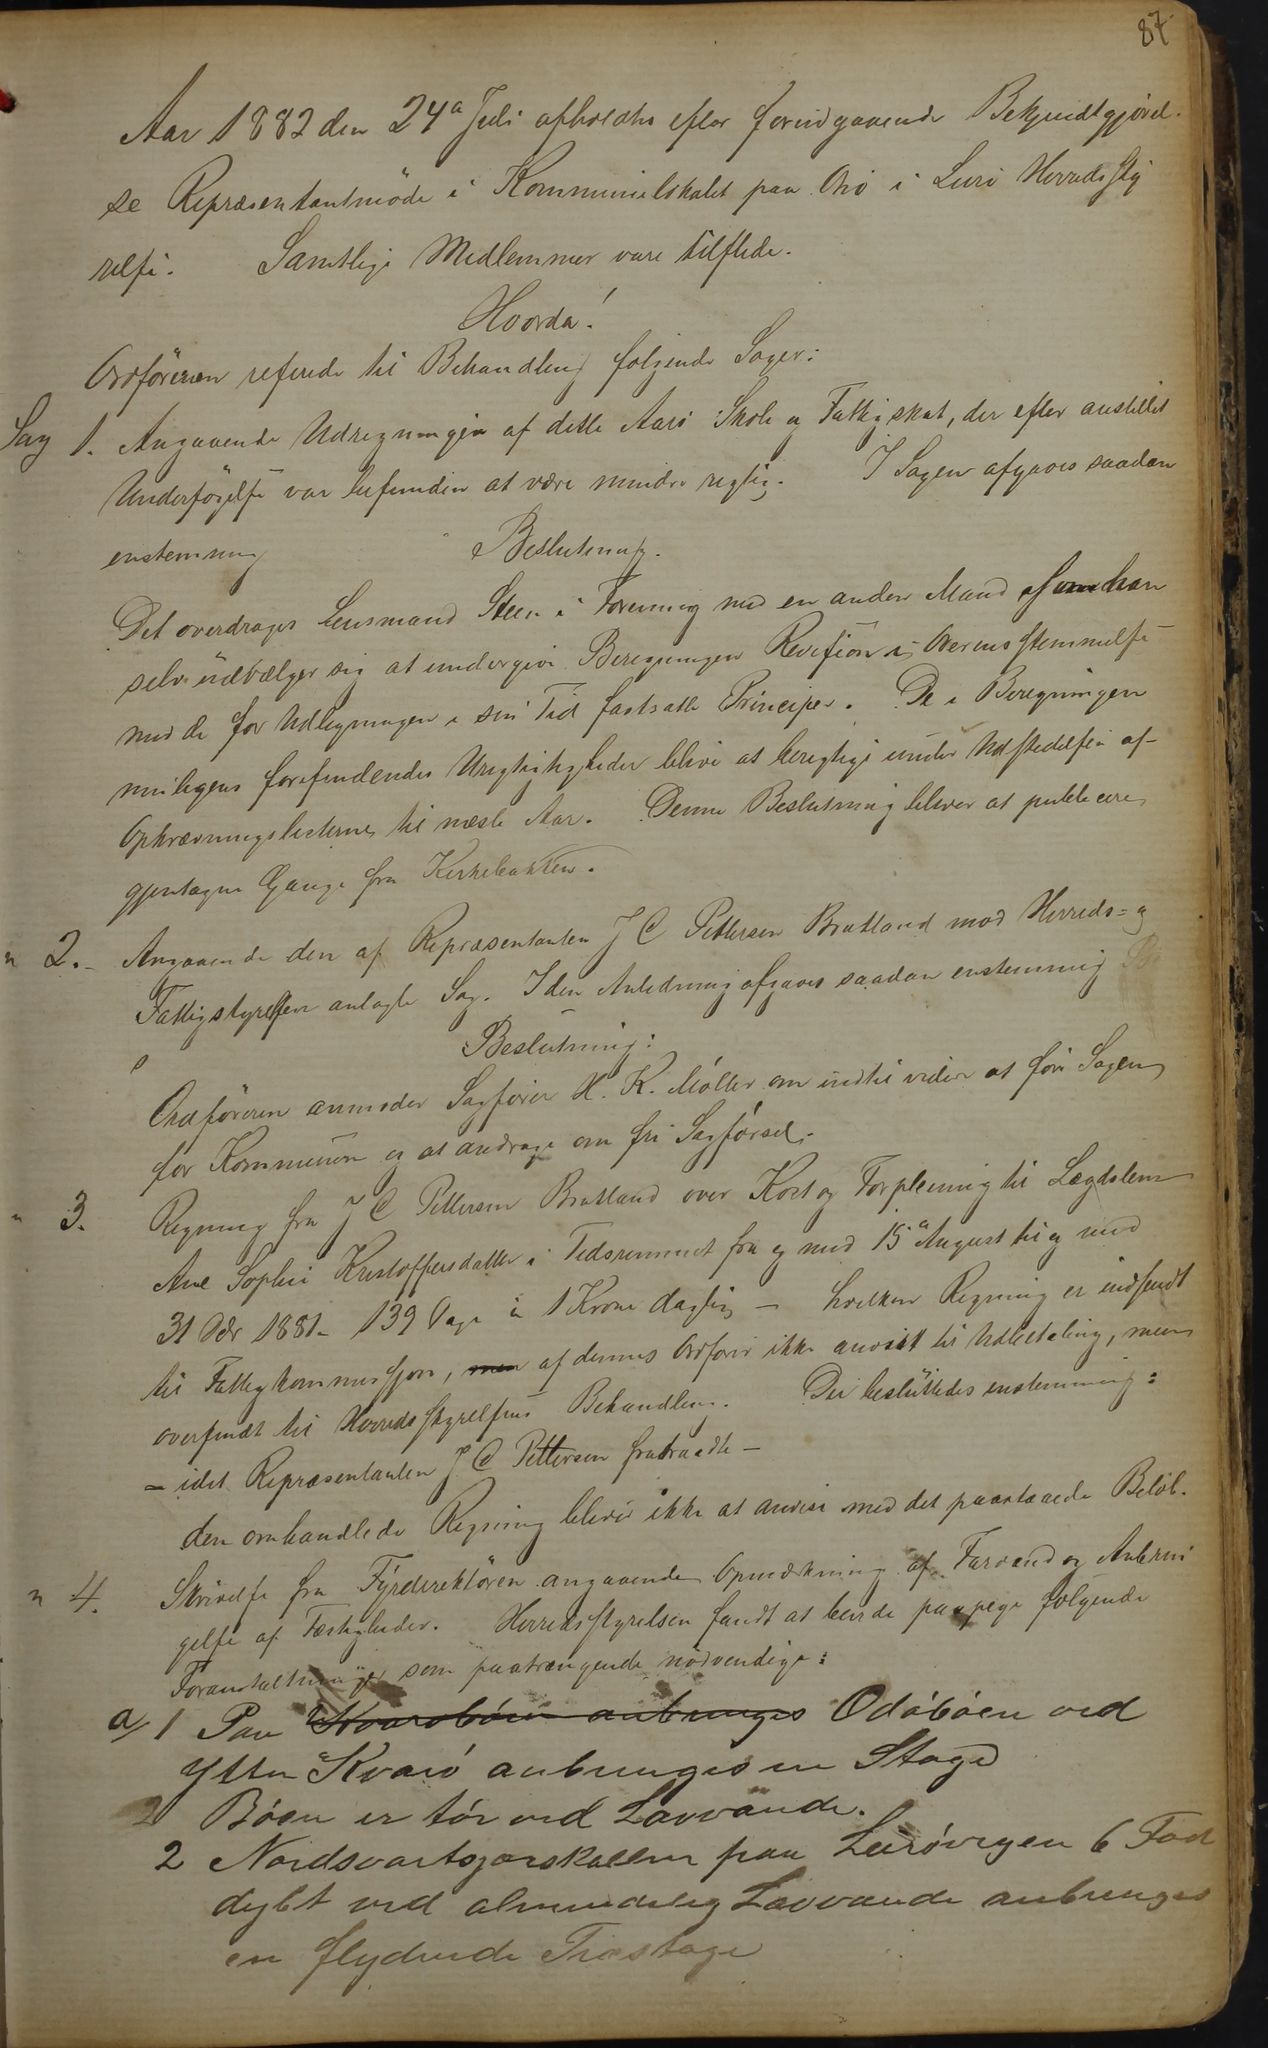 87
Aar 1882 den 24de Juli afholdtes efter foreudgaaende Bekjendtgjörel-
se Repræsentantmöde i Kommunelokalet paa Onö i Lurö Herredssty
relse. Samtlige Medlemmer vare tilstede.
Hvorda!
Ordföreren referede til Behandling følgende Sager:
Sag 1. Angaaende Udregningen af dette Aars Skole og Fattigskat, der efter anstillet
Undersøgelse var befunden at være mindre rigtig. I Sagen afgaves saadan
enstemmig Beslutning.
Det overdrages Lensmand Steen i Forening med en anden Mand som han
selv udvælger sig at undergive Beregningen Revision i Overensstemmelse
med de for Udligningen i sin Tid fastsatte Principer. De i Beregningen
muligens forefindendes Urigtigheder blive at berigtige under Udstedelsen af
Opkrævningslisterne til næste Aar. Denne Beslutning bliver at publicere
gjentagne Gange fra Kirkebakken.
" 2. Angaaende den af Repræsentanten J C Pettersen Bratland mod Herreds- og
Fattigstyrelsen anlagte Sag. I den Anledning afgaves saadan enstemmig
Beslutning:
Ordföreren anmoder Sagfører H. K. Møller om indtil videre at føre Sagen
for Kommunen og at andrage om fri Sagførsel.
" 3. Regning fra J C Pettersen Bratland over Kost og Forpleining til Lægdslem
Ane Sophie Kristoffersdatter i Tidsrummet fra og med 15de August til og med
31 Dbr 1881 - 139 Dage à 1 Krone daglig - hvilken Regning er indsendt
til Fattigkommissjon, men af dennes Ordfører ikke anvist til Udbetaling, men
oversendt til Herredsstyrelsens Behandling. Der besluttedes enstemmig:
- idet Repræsentanten J C Pettersen fratraadte -
den omhandlede Regning bliver ikke at anvise med det paastaaede Beløb.
" 4. Skrivelse fra Fyrdirektøren angaaende Opmærkning af Farvand og Anbrin
gelse af Fæstigheder. Herredsstyrelsen fandt at burde paapege følgende
Foranstaltninger som paatrængende nødvendige:
a/ 1 Paa Kvarøbøen anbringes Odøbøen ved
Ytter Kvarö anbringes en Stage
2 Bøen er tør ved Lavvande.
2 Nordsvartsjærskallen paa Lurøvegen 6 Fod
dybt ved almindelig Lavvande anbringes
en flydende Træstage